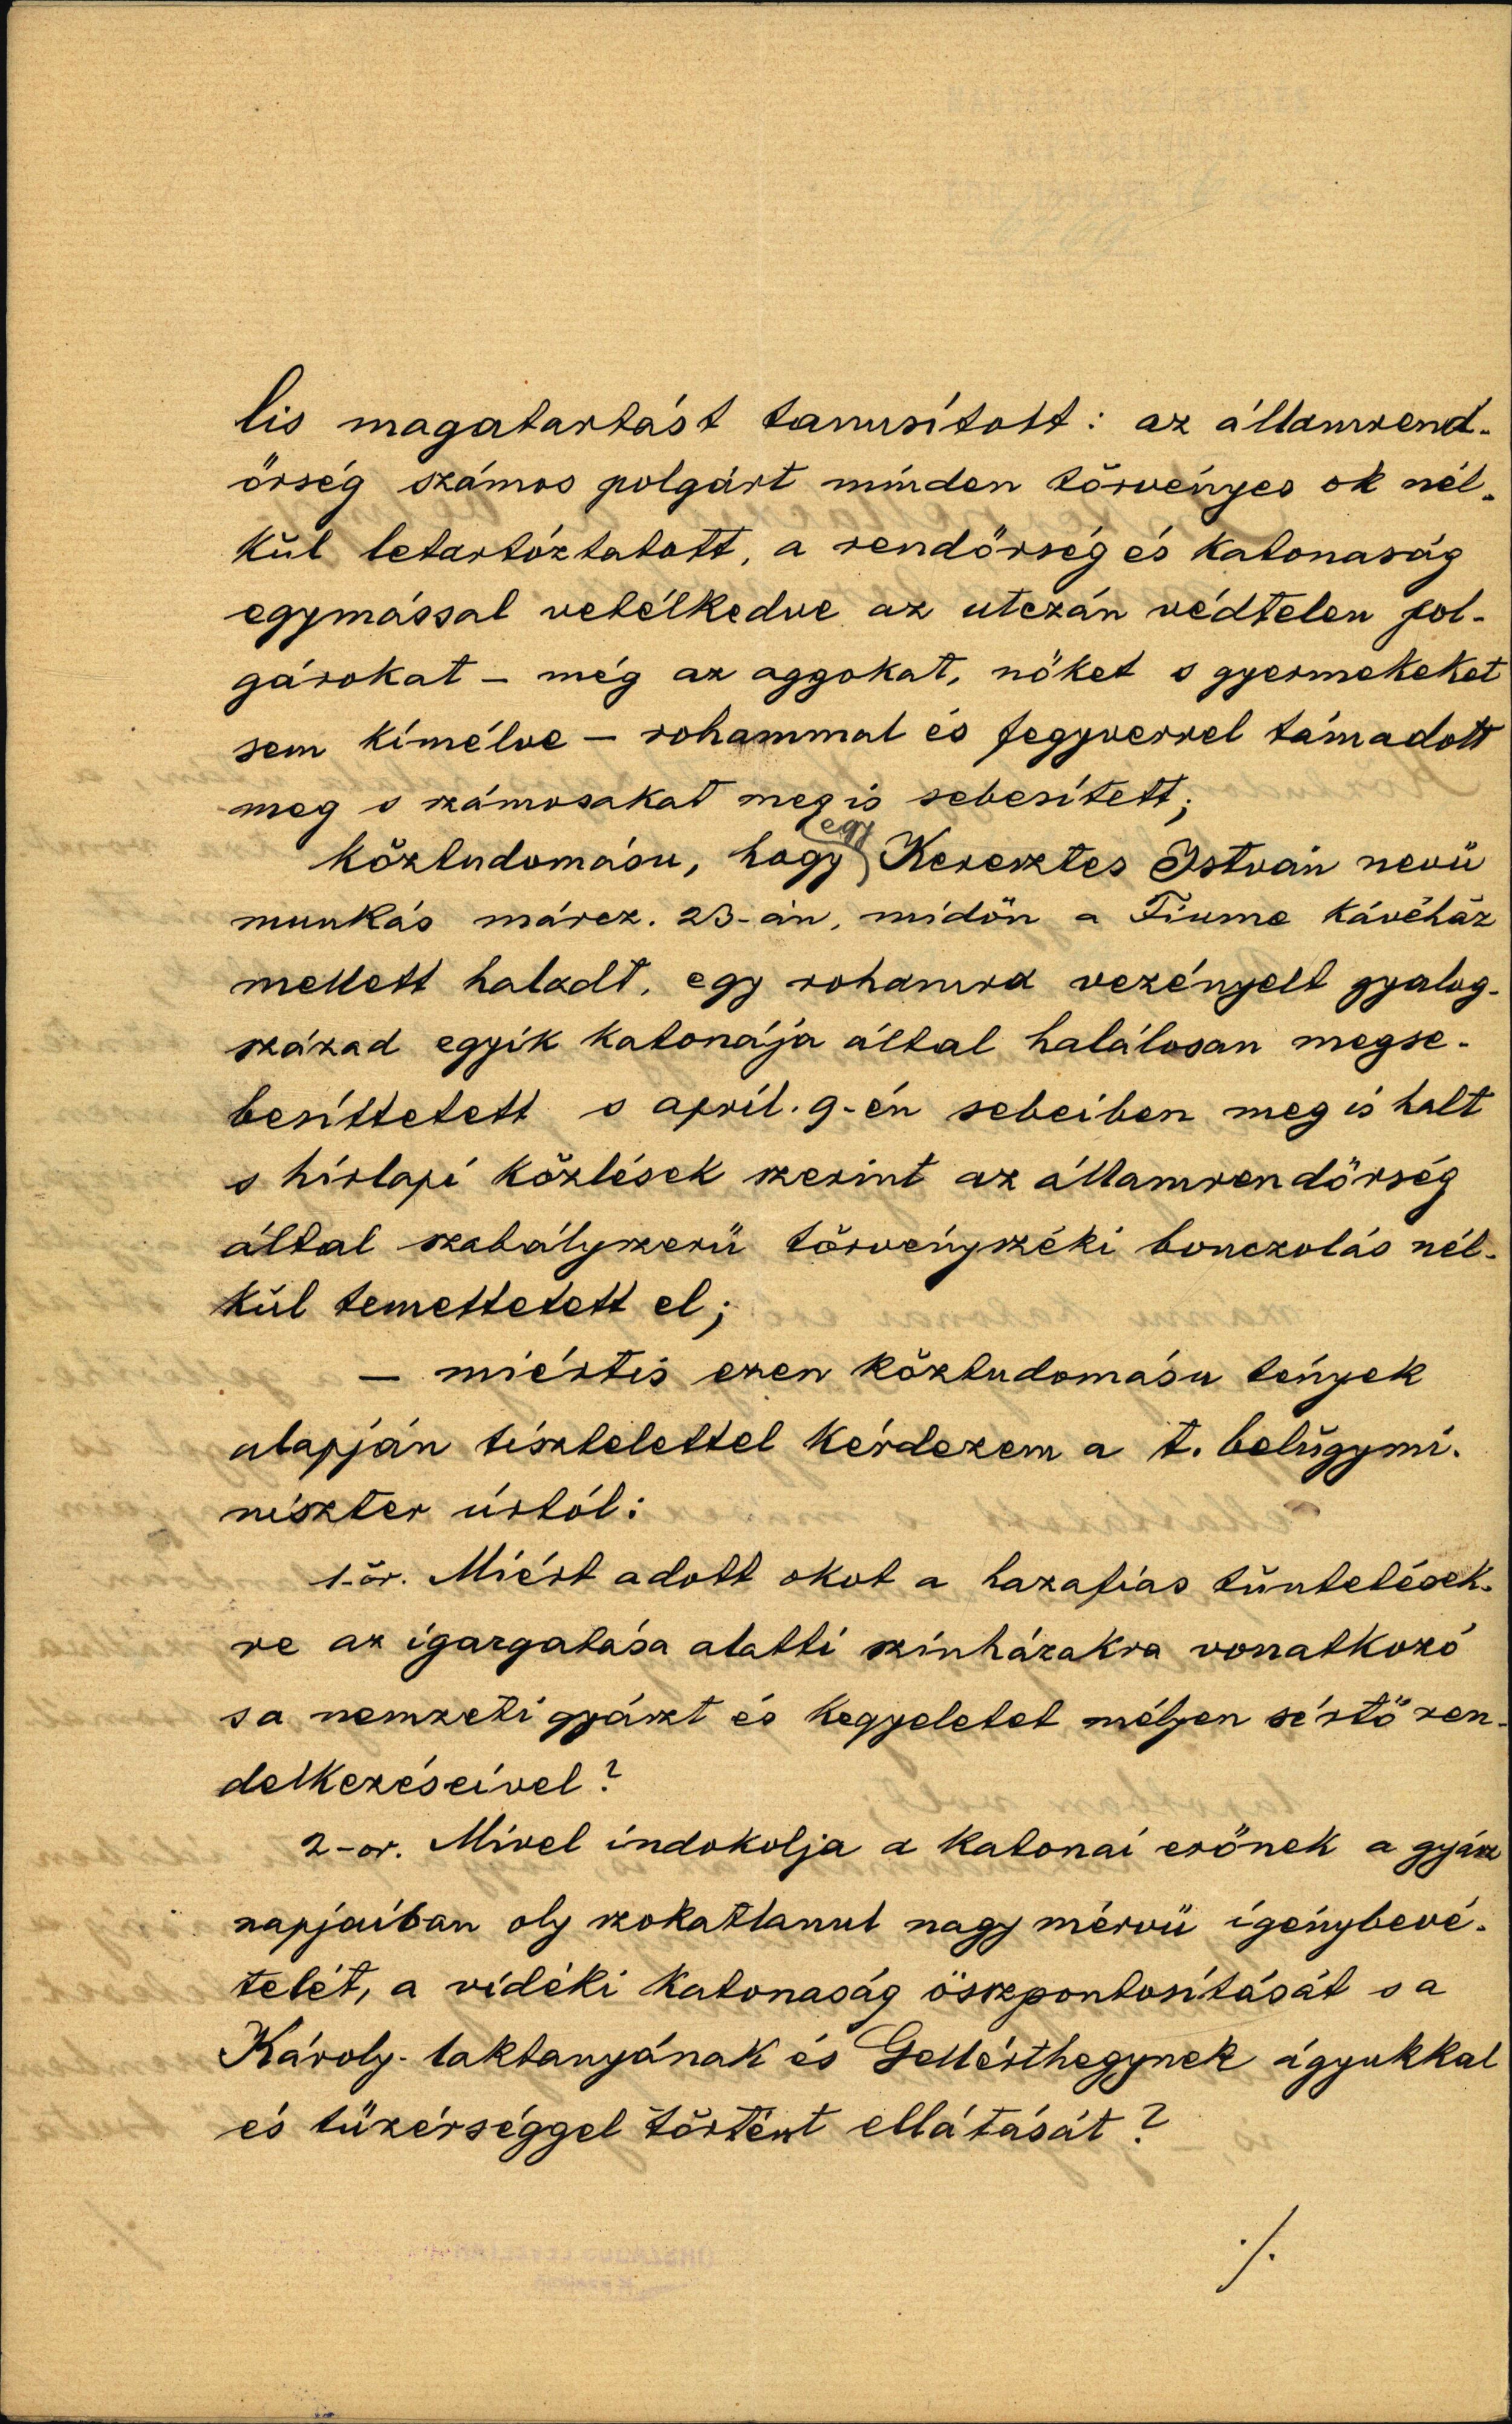 lis magatartást tanusított: az államrend-
örség számos polgárt minden törvényes ok nél-
kül letartóztatott, a rendörség és katonaság
egymással vetélkedve az utczán védtelen pol-
gárokat – még az aggokat, nöket s gyermekeket
sem kímélve – rohammal és fegyverrel támadott
meg s számosakat meg is sebesített;
köztudomásu, hogy egy Keresztes István nevü
munkás márcz. 23-án, midön a Fiume kávéház
mellett haladt, egy rohamra vezényelt gyalog-
század egyik katonája által halálosan megse-
besíttetett s apríl. 9-én sebeiben meg is halt
s hírlapi közlések szerint az államrendörség
által szabályszerü törvényszéki bonczolás nél-
kül temettetett el;
– miértis ezen köztudomásu tények
alapján tisztelettel kérdezem a t. belügymi-
niszter úrtól:
1-ör. Miért adott okot a hazafias tüntetések-
re az igazgatása alatti színházakra vonatkozó
s a nemzeti gyászt és kegyeletet mélyen sértö ren-
delkezéseivel?
2-or. Mivel indokolja a katonai erönek a gyász
napjaiban oly szokatlanul nagy mérvü igénybevé-
telét, a vidéki katonaság öszpontosítását s a
Károly-laktanyának és Gellérthegynek ágyukkal
és tüzérséggel történt ellátását?
./.